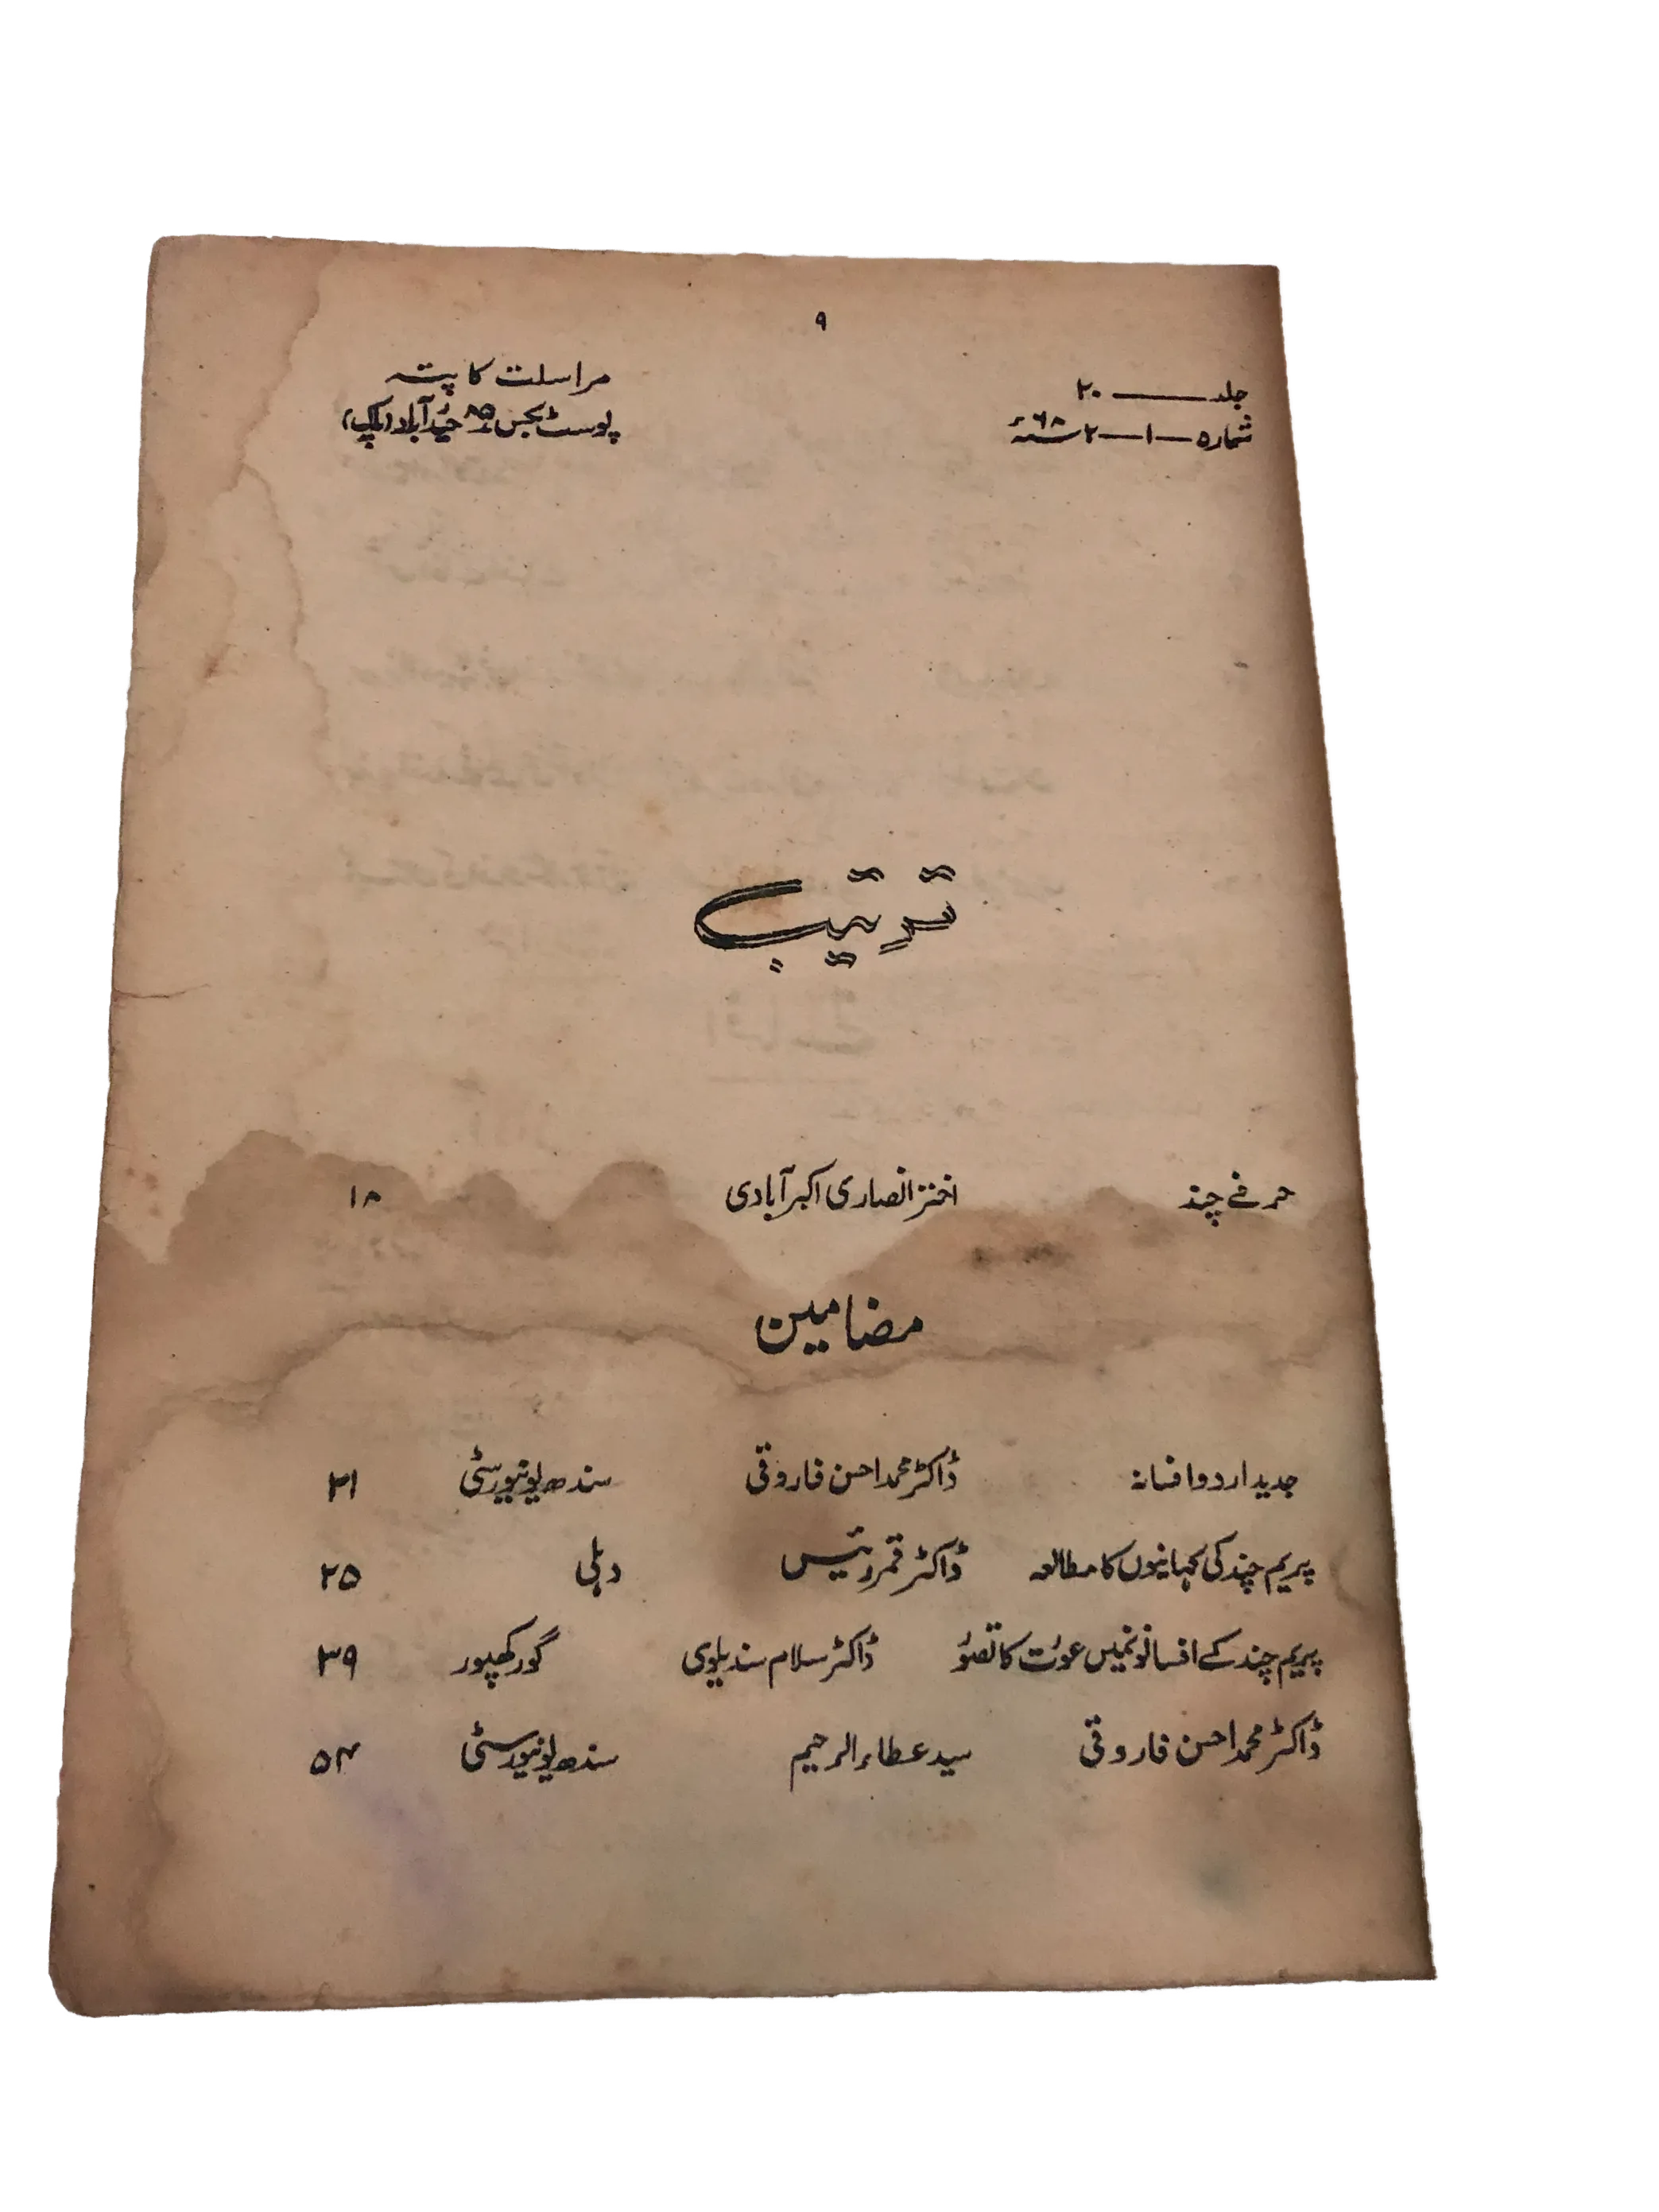 ۹
جلد ـــــ ۲۰
شماره — ۱ — ۲ سنہ ۶۸ء
مراسلت کا پتہ
پوسٹ بکس ۸۵ حیدرآباد (پاک)
ترتیب
حرفے چند اختر انصاری اکبرآبادی ۱۸
مضامین
جدید اردو افسانہ ڈاکٹر محمد احسن فاروقی سندھ یونیورسٹی ۲۱
پریم چند کی کہانیوں کا مطالعہ ڈاکٹر قمر رئیس دہلی ۲۵
پریم چند کے افسانونمیں عورت کا تصوّر ڈاکٹر سلام سندیلوی گورکھپور ۳۹
ڈاکٹر محمد احسن فاروقی سید عطاء الرحیم سندھ یونیورسٹی ۵۴